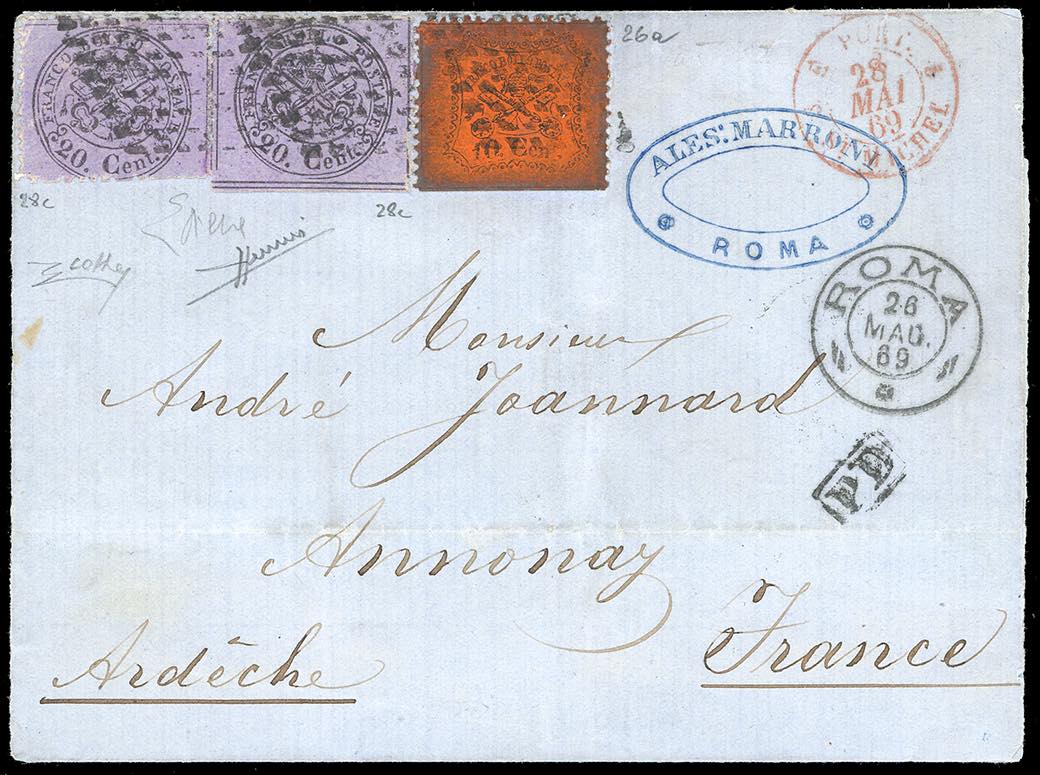 FRANCO BOLLO POSTALE
20. Cent.
FRANCO BOLLO POSTALE
20. Cent.
10 Cent.
26a
28c
28c
PONT.
28
MAI
69
MICHEL
ALES: MARRONI
ROMA
ROMA
26
MAG.
69
PD
Monsieur
André Joannard
Annonay
Ardêche
France